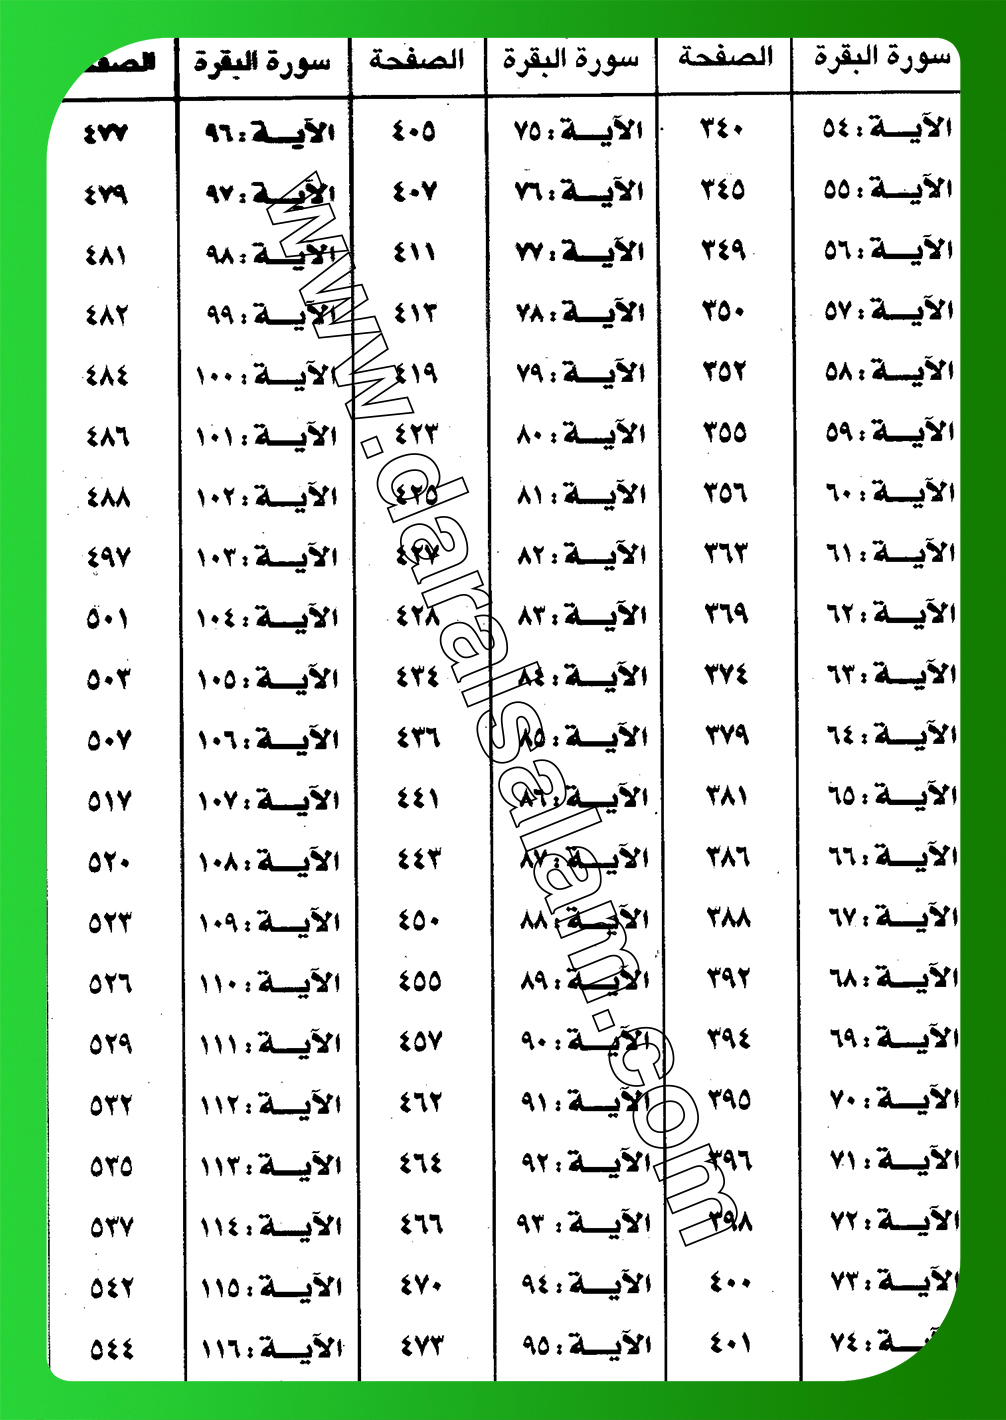 سورة البقرة الصفحة سورة البقرة الصفحة سورة البقرة الصفحة
الآية : ٥٤ ٣٤٠ الآية : ٧٥ ٤٠٥ الآية : ٩٦ ٤٧٧
الآية : ٥٥ ٣٤٥ الآية : ٧٦ ٤٠٧ الآية : ٩٧ ٤٧٩
الآية : ٥٦ ٣٤٩ الآية : ٧٧ ٤١١ الآية : ٩٨ ٤٨١
الآية : ٥٧ ٣٥٠ الآية : ٧٨ ٤١٣ الآية : ٩٩ ٤٨٢
الآية : ٥٨ ٣٥٢ الآية : ٧٩ ٤١٩ الآية : ١٠٠ ٤٨٤
الآية : ٥٩ ٣٥٥ الآية : ٨٠ ٤٢٣ الآية : ١٠١ ٤٨٦
الآية : ٦٠ ٣٥٦ الآية : ٨١ ٤٢٥ الآية : ١٠٢ ٤٨٨
الآية : ٦١ ٣٦٣ الآية : ٨٢ ٤٢٧ الآية : ١٠٣ ٤٩٧
الآية : ٦٢ ٣٦٩ الآية : ٨٣ ٤٢٨ الآية : ١٠٤ ٥٠١
الآية : ٦٣ ٣٧٤ الآية : ٨٤ ٤٣٤ الآية : ١٠٥ ٥٠٣
الآية : ٦٤ ٣٧٩ الآية : ٨٥ ٤٣٦ الآية : ١٠٦ ٥٠٧
الآية : ٦٥ ٣٨١ الآية : ٨٦ ٤٤١ الآية : ١٠٧ ٥١٧
الآية : ٦٦ ٣٨٦ الآية : ٨٧ ٤٤٣ الآية : ١٠٨ ٥٢٠
الآية : ٦٧ ٣٨٨ الآية : ٨٨ ٤٥٠ الآية : ١٠٩ ٥٢٣
الآية : ٦٨ ٣٩٢ الآية : ٨٩ ٤٥٥ الآية : ١١٠ ٥٢٦
الآية : ٦٩ ٣٩٤ الآية : ٩٠ ٤٥٧ الآية : ١١١ ٥٢٩
الآية : ٧٠ ٣٩٥ الآية : ٩١ ٤٦٢ الآية : ١١٢ ٥٣٢
الآية : ٧١ ٣٩٦ الآية : ٩٢ ٤٦٤ الآية : ١١٣ ٥٣٥
الآية : ٧٢ ٣٩٨ الآية : ٩٣ ٤٦٦ الآية : ١١٤ ٥٣٧
الآية : ٧٣ ٤٠٠ الآية : ٩٤ ٤٧٠ الآية : ١١٥ ٥٤٢
الآية : ٧٤ ٤٠١ الآية : ٩٥ ٤٧٣ الآية : ١١٦ ٥٤٤
www.daralsalam.com